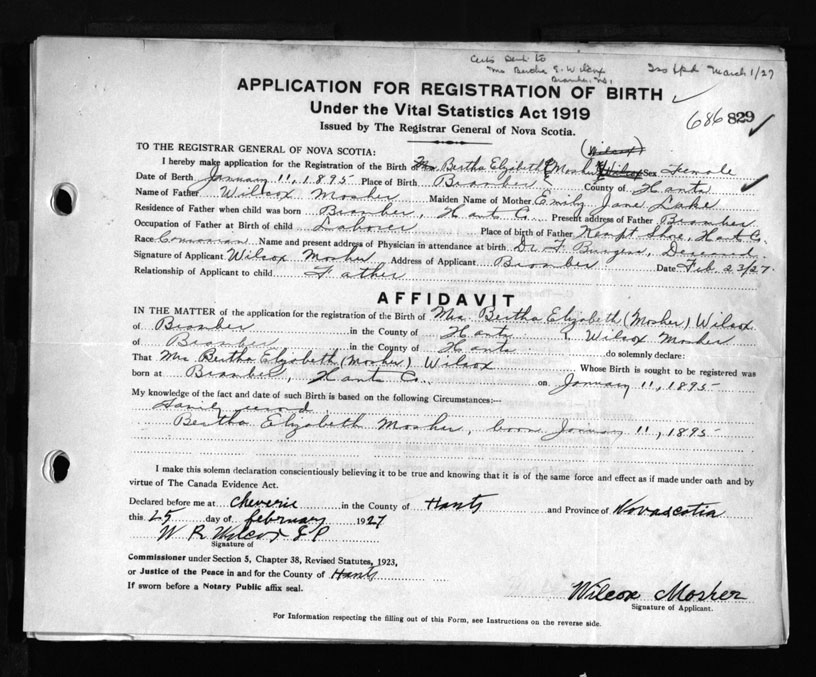 Certs sent to
Mrs Bertha E. Wilcox
Bramber, N.S.
March 1/27
APPLICATION FOR REGISTRATION OF BIRTH
Under the Vital Statistics Act 1919
Issued by The Registrar General of Nova Scotia.
686 829
(Wilcox)
TO THE REGISTRAR GENERAL OF NOVA SCOTIA:
I hereby make application for the Registration of the Birth Mrs Bertha Elizabeth (Mosher) Wilcox Sex Female
Date of Birth January 11, 1895 Place of Birth Bramber County of Hants
Name of Father Wilcox Mosher Maiden Name of Mother Emily Jane Lake
Residence of Father when child was born Bramber, Hants Co. Present address of Father Bramber
Occupation of Father at Birth of child Laborer Place of birth of Father Kempt Shore, Hants Co.
Race Name and present address of Physician in attendance at birth. Dr. F. Burgess, Deceased
Signature of Applicant Wilcox Mosher Address of Applicant Bramber Date Feb 23/27.
Relationship of Applicant to child Father
AFFIDAVIT
IN THE MATTER of the application for the registration of Birth of Mrs. Bertha Elizabeth (Mosher) Wilcox
of Bramber in the County of Hants & Wilcox Mosher
of Bramber in the County of Hants do solemnly declare:
That Mrs Bertha Elizabeth (Mosher) Wilcox Whose Birth is sought to be registered was
born at Bramber, Hants Co. on January 11, 1895
My knowledge of the fact and date of such Birth is based on the following Circumstances:—
Family record.
Bertha Elizabeth Mosher, born January 11, 1895
I make this solemn declaration conscientiously believing it to be true and knowing that it is of the same force and effect as if made under oath and by
virtue of The Canada Evidence Act.
Declared before me at Cheverie in the County of Hants and Province of Novascotia
this 25 day of february 1927
W R Wilcox J P
Signature of
Commissioner under Section 5, Chapter 38, Revised Statutes, 1923,
or Justice of the Peace in and for the County of Hants
If sworn before a Notary Public affix seal.
Wilcox Mosher
Signature of Applicant.
For Information respecting the filling out of this Form, see Instructions on the reverse side.